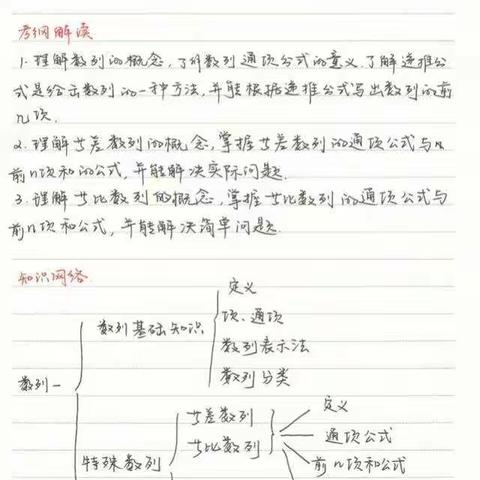 考纲解读
1. 理解数列的概念,了解数列通项公式的意义.了解递推公
式是给出数列的一种方法,并能根据递推公式写出数列的前
几项.
2. 理解等差数列的概念,掌握等差数列的通项公式与n
前n项和的公式,并能解决实际问题.
3. 理解等比数列的概念,掌握等比数列的通项公式与
前n项和公式,并能解决简单问题.
知识网络
定义
数列基础知识
项、通项
数列表示法
数列分类
数列一
等差数列
等比数列
特殊数列
定义
通项公式
前n项和公式